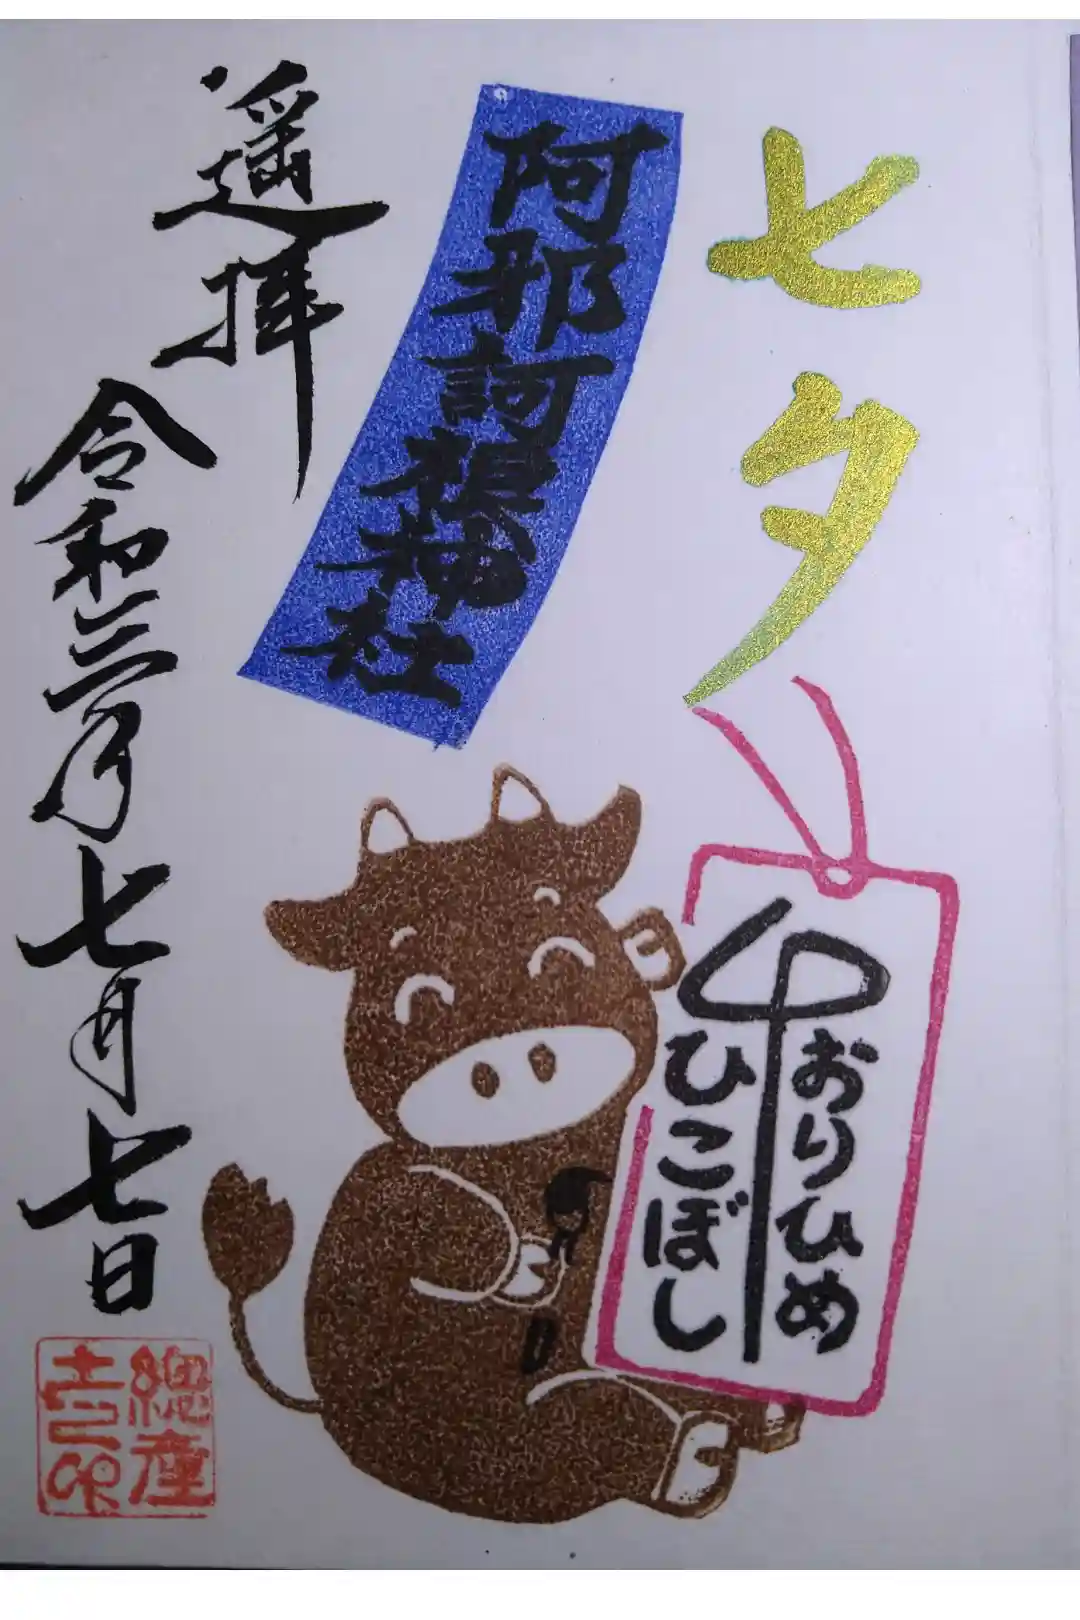 七夕
おりひめ
ひこぼし
阿邪訶根神社
遙拝
令和三年七月七日
總産
土之印